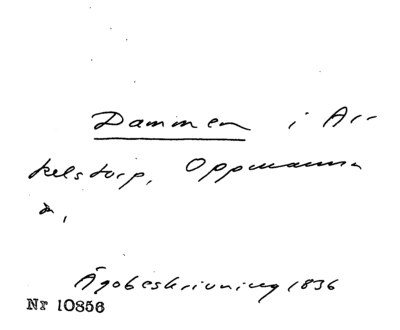 Dammen i Ar-
kelstorp, Oppmanna
s,
Ägobeskrivning 1836
Nr 10856